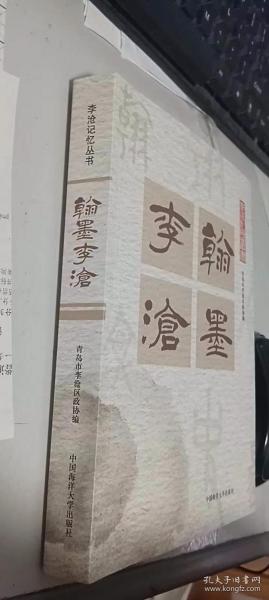 李沧记忆丛书
翰墨李滄
青岛市李沧区政协编
中国海洋大学出版社
翰墨
李滄
中国海洋大学出版社
孔夫子旧书网